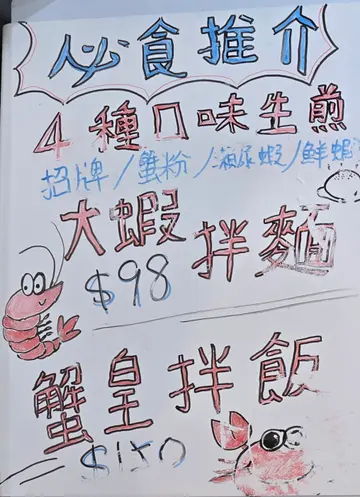 必食推介
4種口味生煎
招牌/蟹粉/瀨尿蝦/鮮蝦
大蝦拌麵
$98
蟹皇拌飯
$150